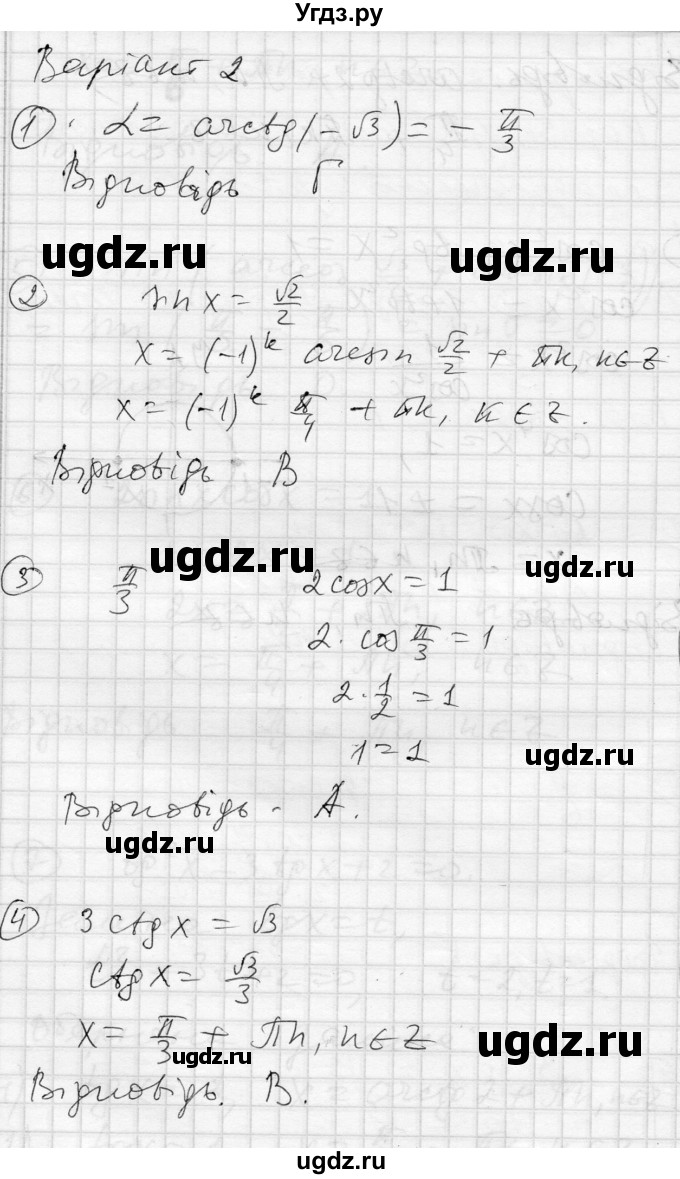 Угдз.ру
Варіант 2
1. α = arctg(-√3) = -π/3
Відповідь Г
ugdz.ru ugdz.ru
2 sin x = √2/2
x = (-1)^k arcsin √2/2 + πk, k∈Z
x = (-1)^k π/4 + πk, k∈Z.
Відповідь В
ugdz.ru ugdz.ru
3 π/3 2cosx = 1
2·cos π/3 = 1
2·1/2 = 1
1 = 1 ugdz.ru
Відповідь - А.
ugdz.ru
4 3ctgx = √3
ctgx = √3/3
x = π/3 + πn, n∈Z ugdz.ru
ugdz.ru
Відповідь. В.
ugdz.ru